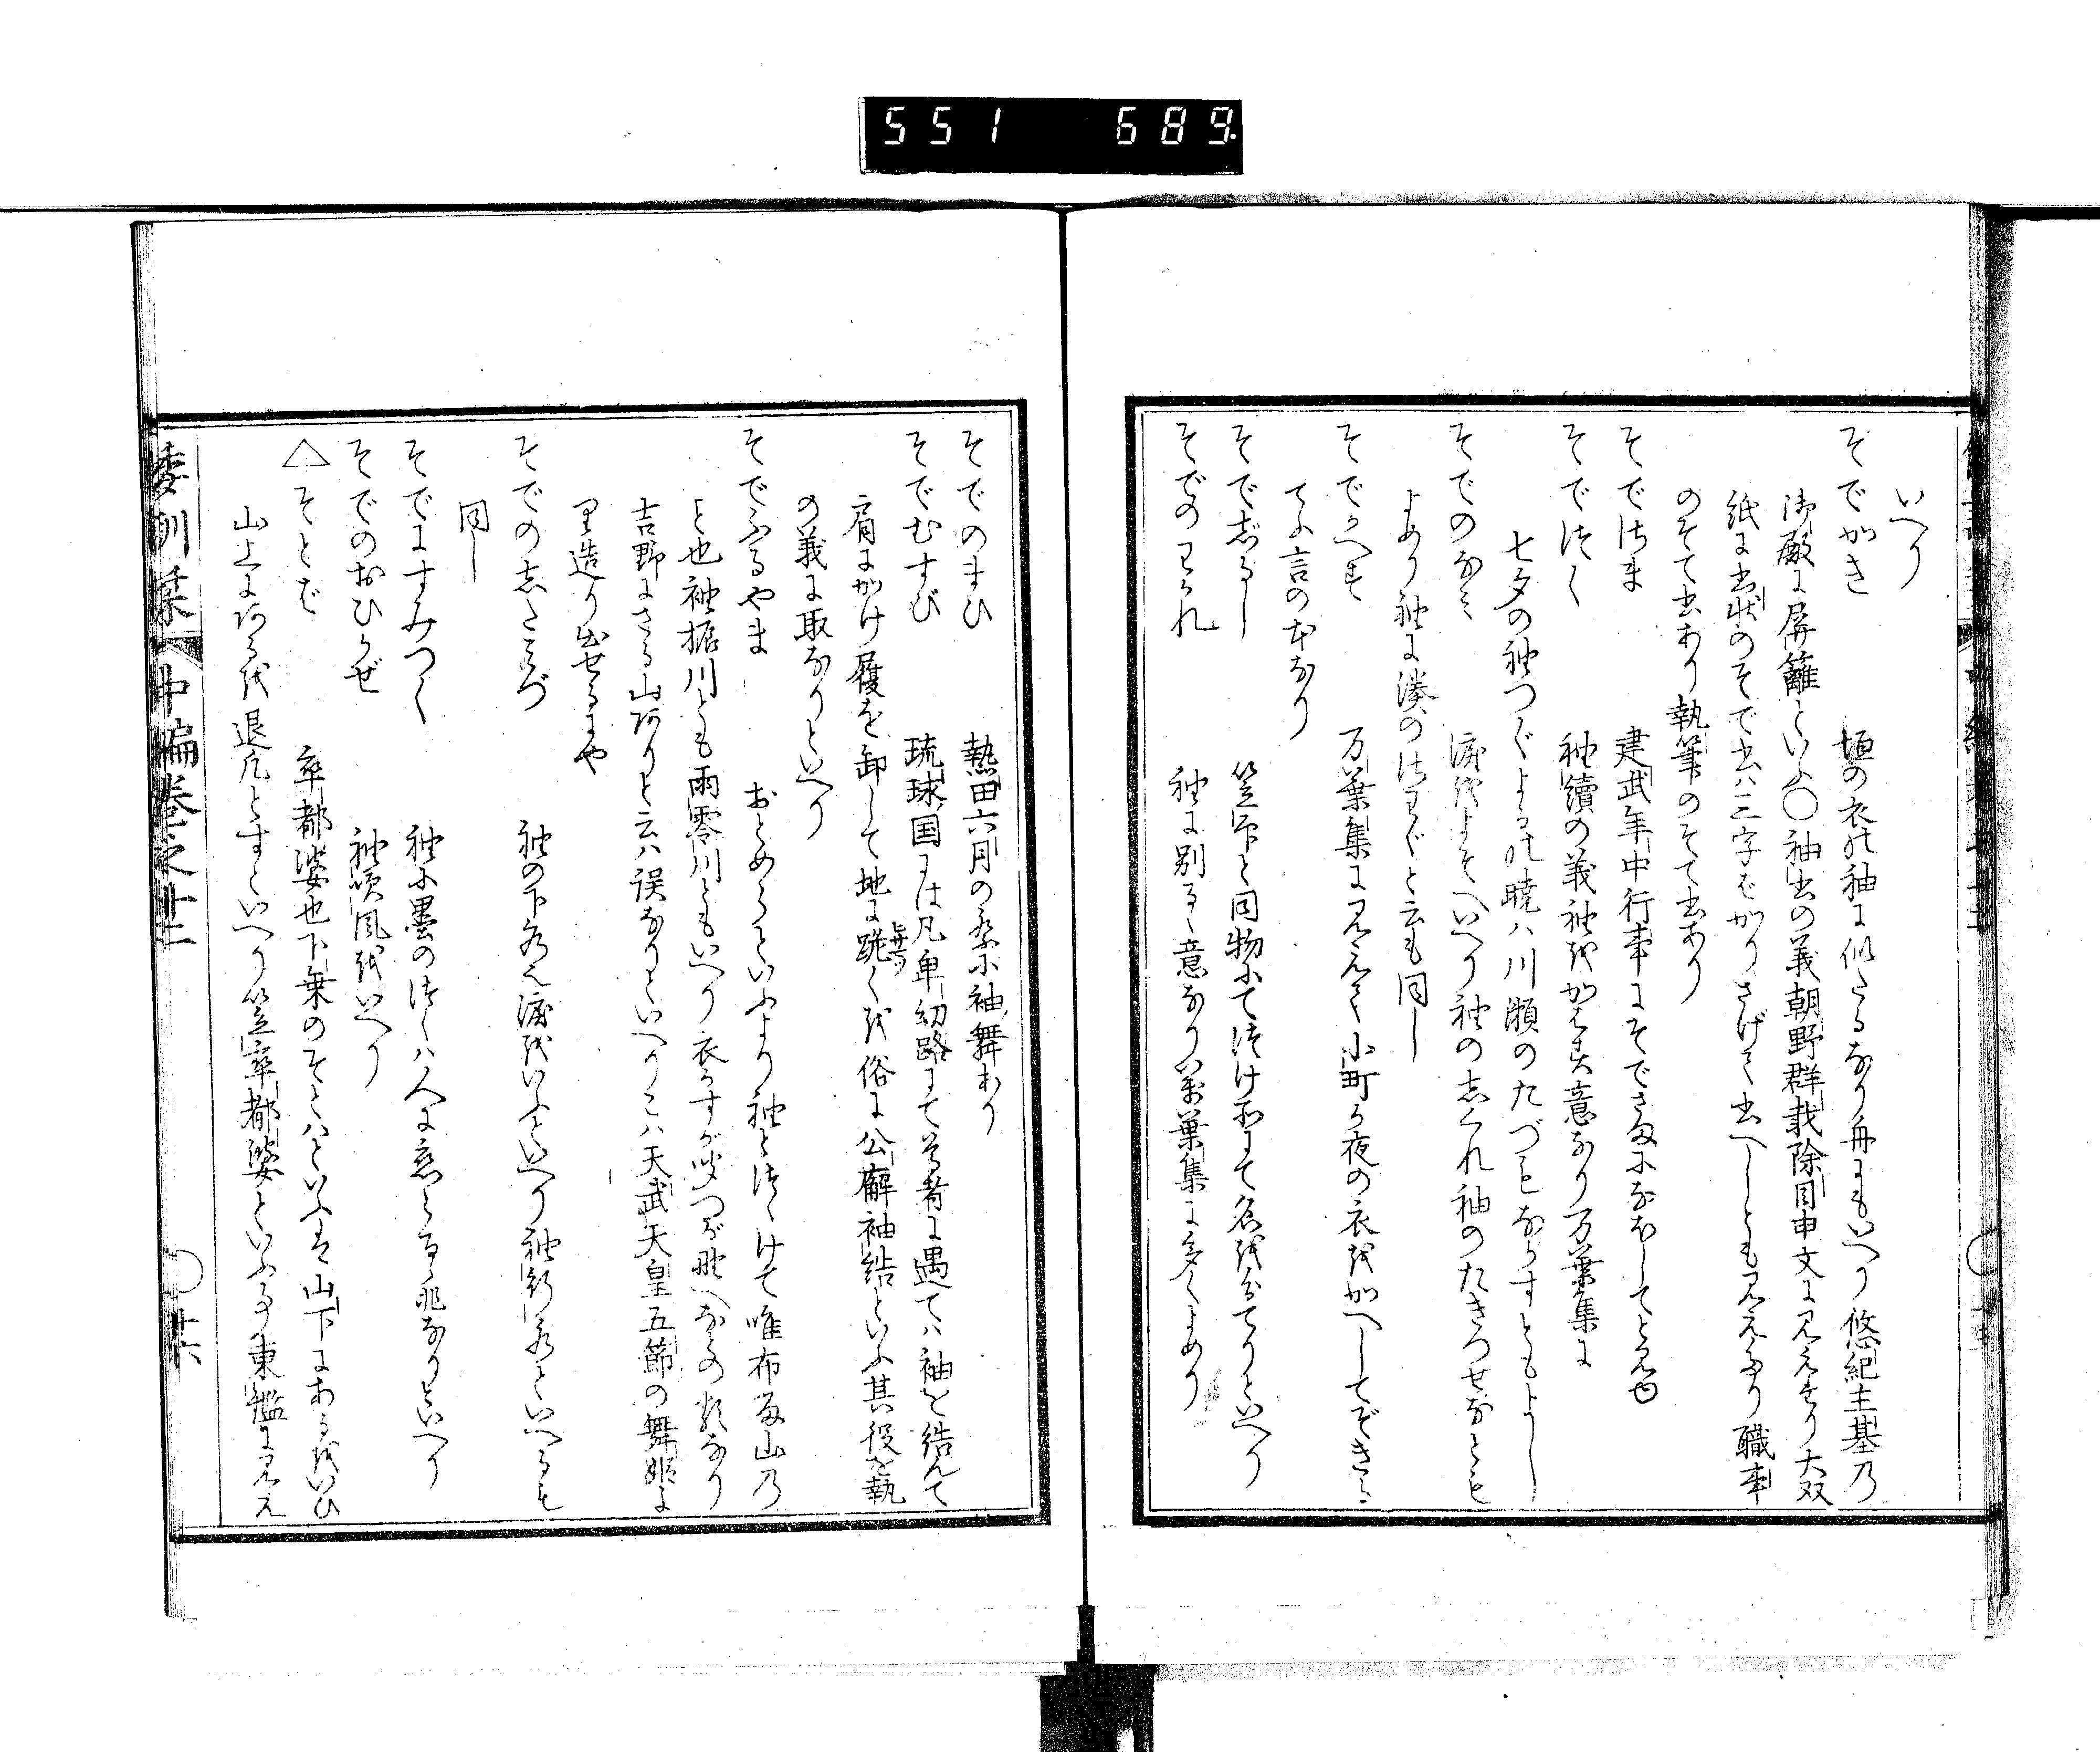 551 689
いへり
そでがき 垣の衣の袖に似たるなり舟にもいへり悠紀主基乃
御殿に屏籬といふ〇袖書の義朝野群載除目申文に見えたり大双
紙に書状のそで書ハ三字ばかりさげて書へしとも見えたり職事
のそて書あり執筆のそて書あり
そでつま 建武年中行事にそでさまになほしてと見ゆ
そでつく 袖續の義袖をかはす意なり万葉集に
七夕の袖つくよひの暁ハ川瀬のたづもなかすともよし
そでのなみ 涙をよそへいへり袖のしくれ袖のたきつせなとも
よめり袖に湊のさわぐと云も同し
そでかへす 万葉集に見えて小町か夜の衣をかへしてぞきる
てふ言の本なり
そでじるし 笠印と同物にてつけ所にて名を分てりといへり
そでのわかれ 袖に別るゝ意なり萬葉集に多くよめり
そでのまひ 熱田六月の祭に袖舞あり
そでむすび 琉球国には凡卑幼路にて尊者に遇てハ袖を結んて
肩にかけ履を卸して地に跪くを俗に公廨袖結といふ其役を執
の義に取なりといへり
そでふるやま おとめらといふより袖とつゝけて唯布留山乃
と也袖振川とも雨零川ともいへり
吉野にさる山ありと云ハ誤なりといへりこハ天武天皇五節の舞姫に
より造り出せるにや
そでのしたみづ 袖の下水之涙をいふといへり袖行水といへるも
同し
そでにすみつく 袖に墨のつくハ人に恋らるゝ兆なりといへり
そでのおひかぜ 袖順風をいへり
△そとば 卒都婆也下乗のそとハといふは山下にあるをいひ
山上にあるを退凡とすといへり笠卒都婆といふ事東鑑に見え
倭訓栞 中編巻之十二 〇 廿六